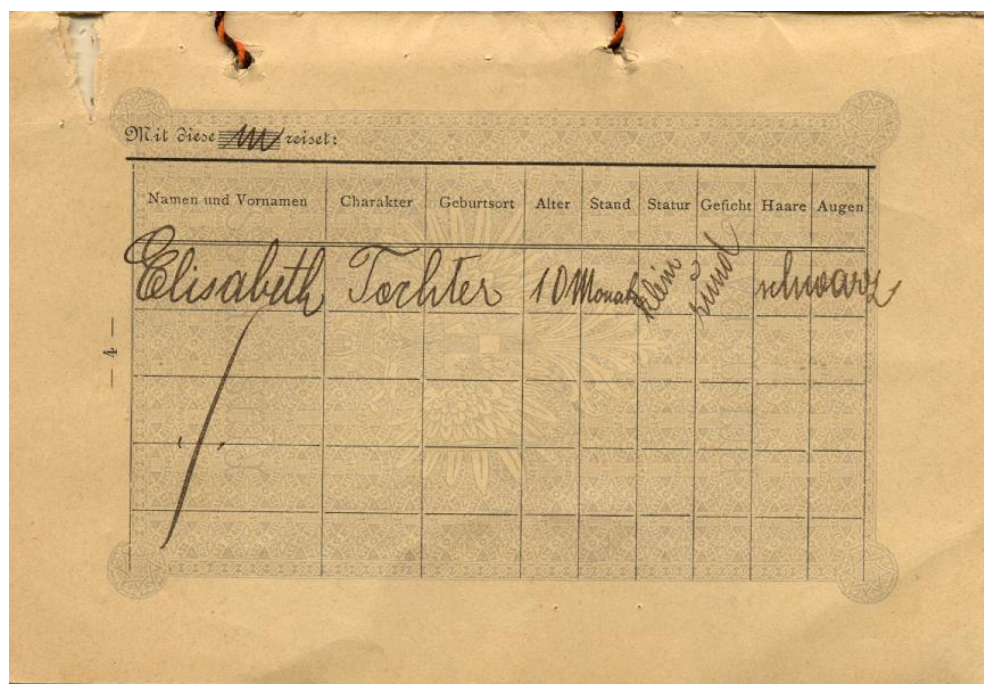 Mit diesem reiset:
Namen und Vornamen Charakter Geburtsort Alter Stand Statur Gesicht Haare Augen
Elisabeth Tochter 10 Monate klein rund schwarz
— 4 —